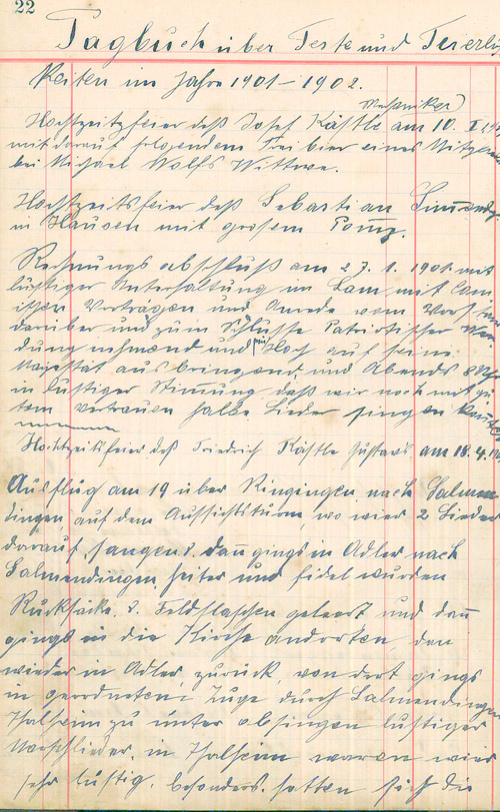 22
Tagbuch über Feste und Feierlich
keiten im Jahre 1901-1902.
Mechaniker
Hochzeitsfeier deß Josef Kästle am 10. II.
mit darauf folgendem Freibier eines Mitglieds
bei Michael Wolfs Wittwe.
Hochzeitsfeier deß Sebastian
in Hausen mit großem Pomp.
Rechnungsabschluß am 27. 1. 1901 mit
lustiger Unterhaltung im Lam mit Com
ischen Vorträgen und Anrede vom Vorstand
darüber und zum Schlusse Patriotischer Wen
dung nehmend und ein Hoch auf seine
Majestät ausbringend und Abends 8 Uhr
in lustiger Stimmung, daß wir noch mit gu
tem vertrauen halbe Lieder singen
Hochzeitsfeier deß Friedrich Kästle Gustavs am 18. 4.
Ausflug am 19 über Ringingen nach Salmen
dingen auf dem Aussichtsturm, wo wier 2 Lieder
darauf sangen u. dan gings in Adler nach
Salmendingen heiter und fidel wurden
Rucksäcke u. Feldflaschen geleert und dan
gings in die Kirche andorten dan
wieder in Adler zurück, von dort gings
in geordnetem Zuge durch Salmendingen
Thalheim zu unter absingen lustiger
Marschlieder, in Thalheim waren wier
sehr lustig, besonders hatten sich die